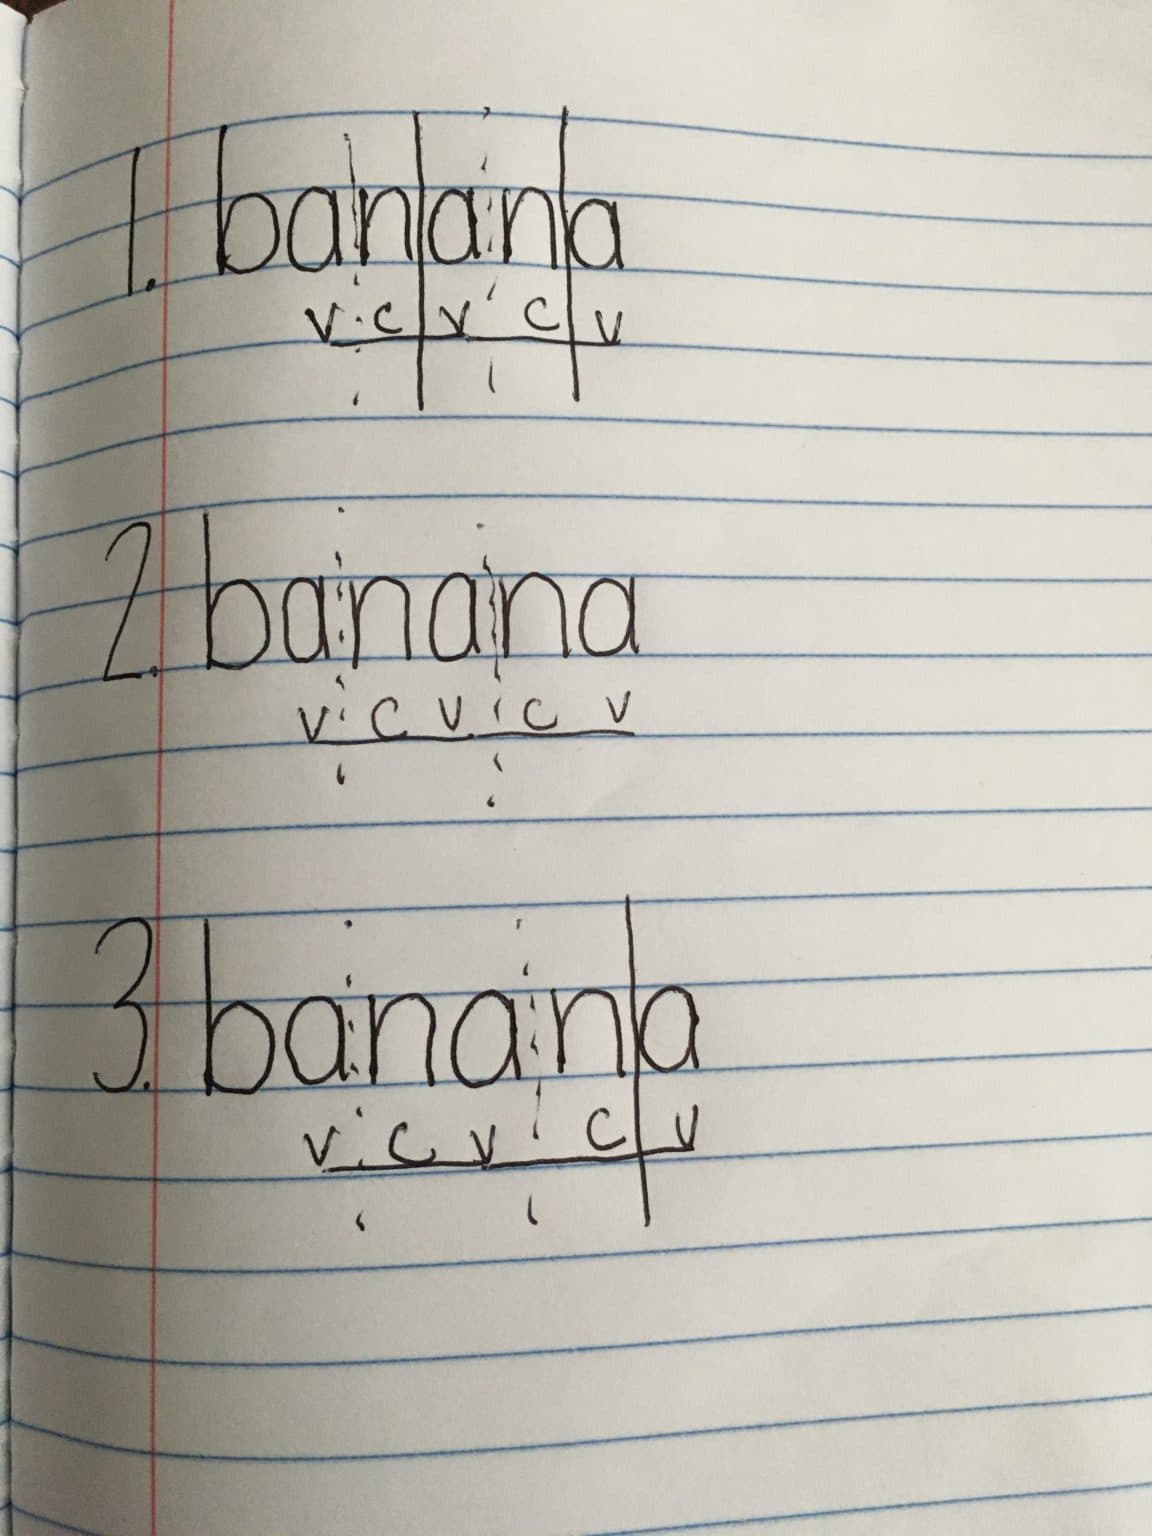 1. banana
v c v c v
2. banana
v c v c v
3. banana
v c v c v